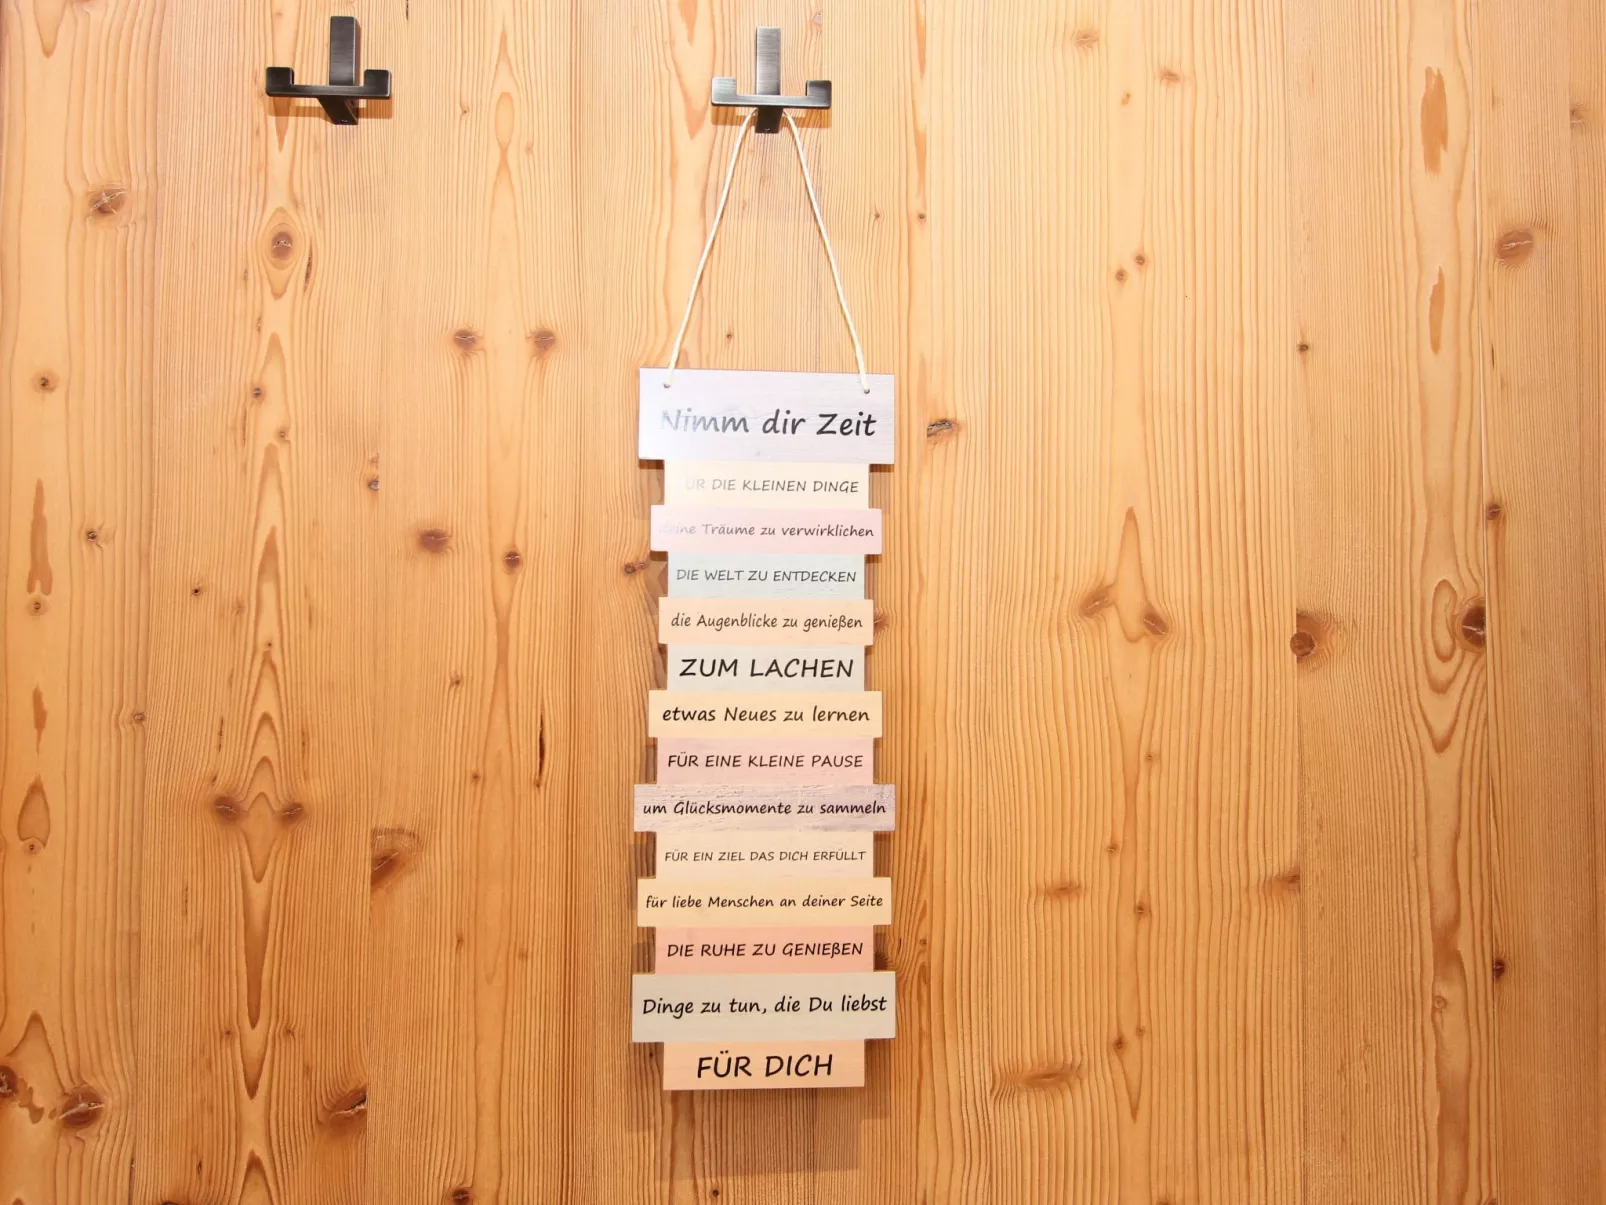 Nimm dir Zeit
FÜR DIE KLEINEN DINGE
deine Träume zu verwirklichen
DIE WELT ZU ENTDECKEN
die Augenblicke zu genießen
ZUM LACHEN
etwas Neues zu lernen
FÜR EINE KLEINE PAUSE
um Glücksmomente zu sammeln
FÜR EIN ZIEL DAS DICH ERFÜLLT
für liebe Menschen an deiner Seite
DIE RUHE ZU GENIEßEN
Dinge zu tun, die Du liebst
FÜR DICH